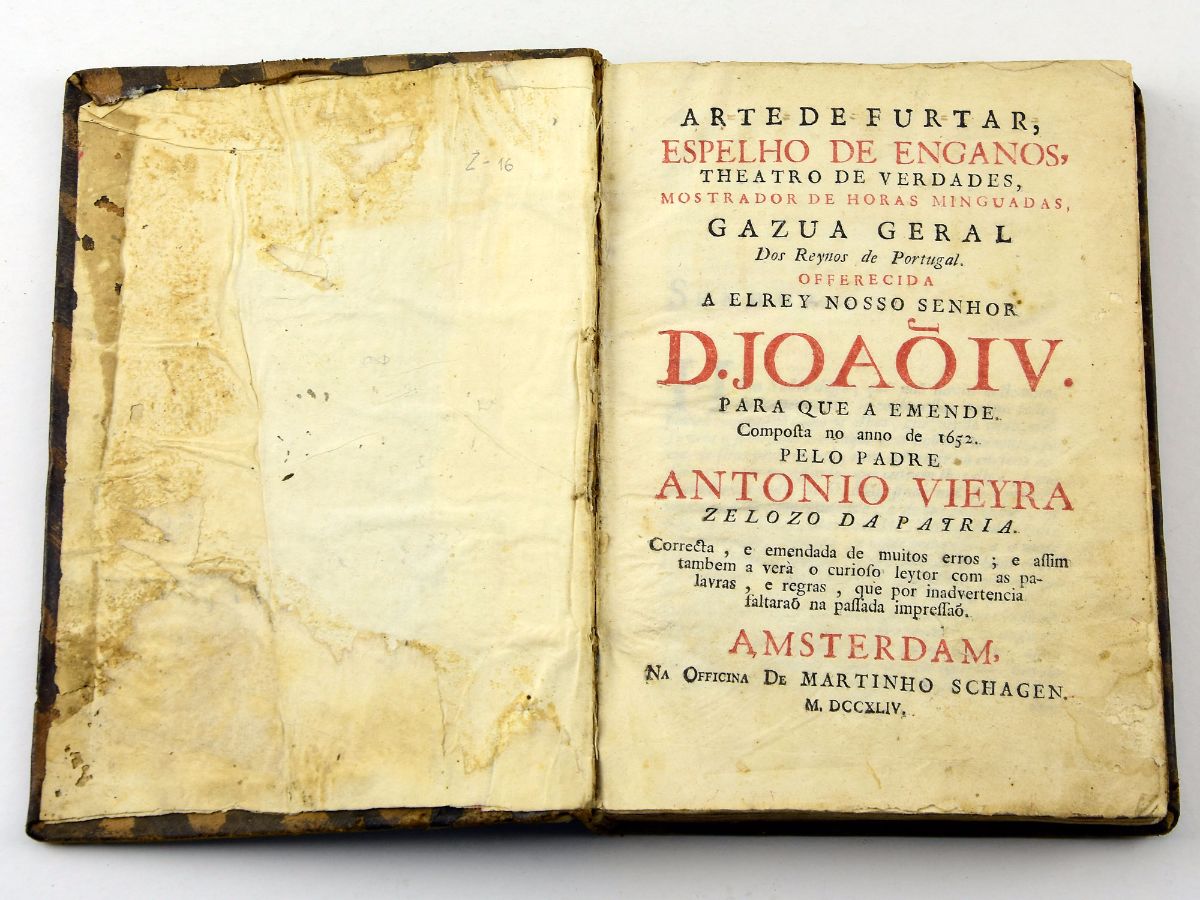 Z-16
ARTE DE FURTAR,
ESPELHO DE ENGANOS,
THEATRO DE VERDADES,
MOSTRADOR DE HORAS MINGUADAS,
GAZUA GERAL
Dos Reynos de Portugal.
OFFERECIDA
A ELREY NOSSO SENHOR
D. JOAÕ IV.
PARA QUE A EMENDE.
Compoſta no anno de 1652.
PELO PADRE
ANTONIO VIEYRA
ZELOZO DA PATRIA.
Correcta, e emendada de muitos erros; e aſſim
tambem a verà o curioſo leytor com as pa-
lavras, e regras, que por inadvertencia
faltaraõ na paſſada impreſſaõ.
AMSTERDAM,
NA OFFICINA DE MARTINHO SCHAGEN.
M. DCCXLIV.